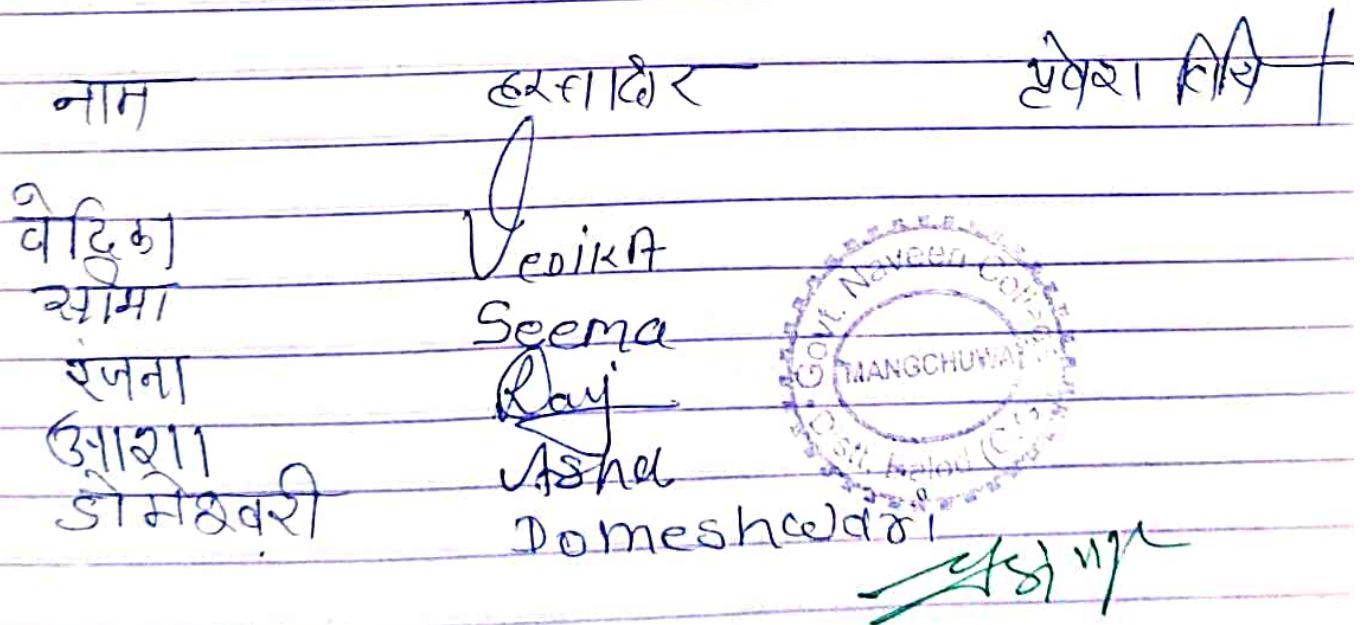 नाम हस्ताक्षर प्रवेश तिथि
वेदिका Vedika
सीमा Seema
रंजना Ranj
आशा Asha
डोमेश्वरी Domeshwari
Govt. Naveen College
MANGCHUWA
Distt. Balod (C.G.)